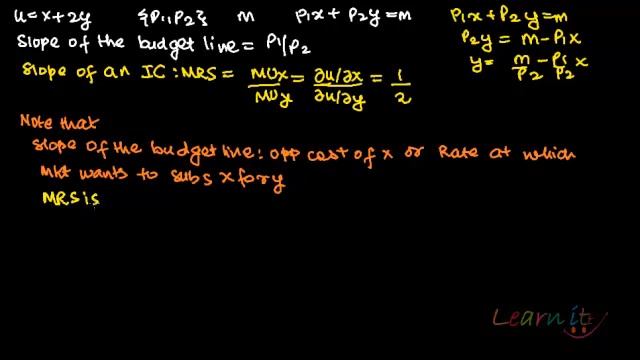 u=x+2y {P1,P2} m P1x + P2y = m
Slope of the budget line = P1/P2
Slope of an IC : MRS = MUx/MUy = ∂u/∂x/∂u/∂y = 1/2
P1x + P2y = m
P2y = m - P1x
y = m/P2 - P1/P2 x
Note that
slope of the budget line : opp cost of x or Rate at which
mkt wants to subs x for y
MRS is
Learn it